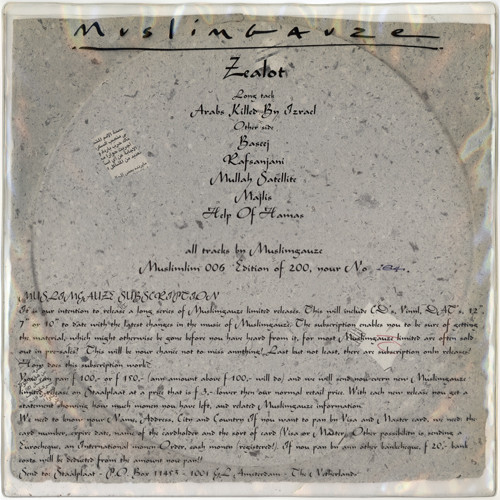 Muslimgauze
Zealot
Long tack
Arabs Killed By Izrael
Other side
Baseej
Rafsanjani
Mullah Satellite
Majlis
Help Of Hamas
all tracks by Muslimgauze
Muslimlim 006 Edition of 200, your No
MUSLIMGAUZE SUBSCRIPTION
It is our intention to release a long series of Muslimgauze limited releases. This will include CD's, Vinyl, DAT's, 12"
7" or 10" to date with the latest changes in the music of Muslimgauze. The subscription enables you to be sure of getting
the material, which might otherwise be gone before you have heard from it, for most Muslimgauze limited are often sold
out in presales! This will be your chance not to miss anything! Last but not least, there are subscription only releases!
How does this subscription work?
You can pay f 100,- or f 150,- (any amount above f 100,- will do) and we will send you every new Muslimgauze
limited release on Staalplaat at a price that is f 3,- lower then our normal retail price. With each new release you get a
statement showing how much money you have left, and related Muslimgauze information.
We need to know your Name, Address, City and Country. If you want to pay by Visa and Master card, we need: the
card number, expiry date, name of the cardholder and the sort of card (Visa or Master). Other possibility is sending a
Eurocheque, an International money Order, cash money (registered!). If you pay by any other bankcheque, f 20,- bank
costs will be deducted from the amount you paid!!
Send to: Staalplaat - P.O. Box 11453 - 1001 GL Amsterdam - The Netherlands